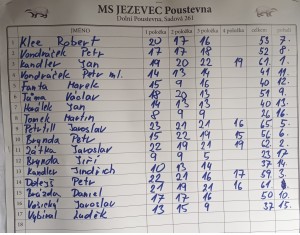 MS JEZEVEC Poustevna
Dolní Poustevna, Sadová 261
JMÉNO 1 položka 2 položka 3 položka 4 položka celkem
1 Klee Robert 20 17 16 53 7.
2 Vondráček Petr 17 17 18 52 8.
3 Kandler Jan 19 20 22 19 61 1.
4 Vondráček Petr ml. 14 13 14 41 11.
5 Fanta Marek 15 9 16 40 12.
6 Václav 18 20 13 51 9.
7 Jan 14 13 13 40 13.
8 Tomek Martin 8 9 9 26 16.
9 Jaroslav 23 21 21 16 65 5.
10 Brynda Petr 15 22 19 15 56 6.
11 Zátka Jaroslav 22 19 21 62 2.
12 Brynda Jiří 9 9 5
13 Kandler Jindřich 10 13 14 37 14.
14 Petr 22 22 16 17 59 3.
15 Brázda Daniel 21 19 21 16 61
16 Jaroslav 17 17 16 50 10.
17 Vybíral Luděk 13 15 9 37 15.
18